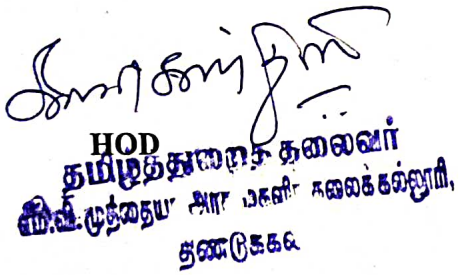 HOD
தமிழ்த்துறைத் தலைவர்
எம்.வி.முத்தையா அரசு மகளிர் கலைக்கல்லூரி,
திண்டுக்கல்